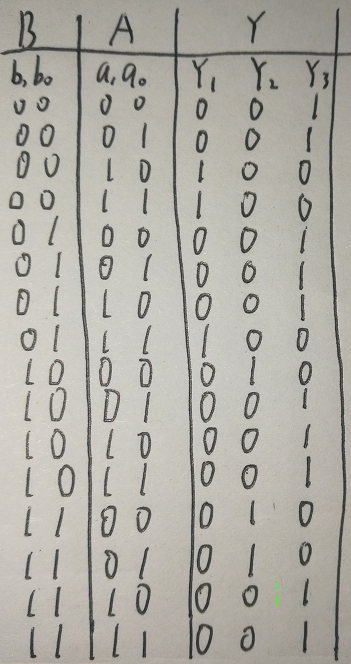 B A Y
b₁ b₀ a₁ a₀ Y₁ Y₂ Y₃
0 0 0 0 0 0 1
0 0 0 1 0 0 1
0 0 1 0 1 0 0
0 0 1 1 1 0 0
0 1 0 0 0 0 1
0 1 0 1 0 0 1
0 1 1 0 0 0 1
0 1 1 1 1 0 0
1 0 0 0 0 1 0
1 0 0 1 0 0 1
1 0 1 0 0 0 1
1 0 1 1 0 0 1
1 1 0 0 0 1 0
1 1 0 1 0 1 0
1 1 1 0 0 0 1
1 1 1 1 0 0 1